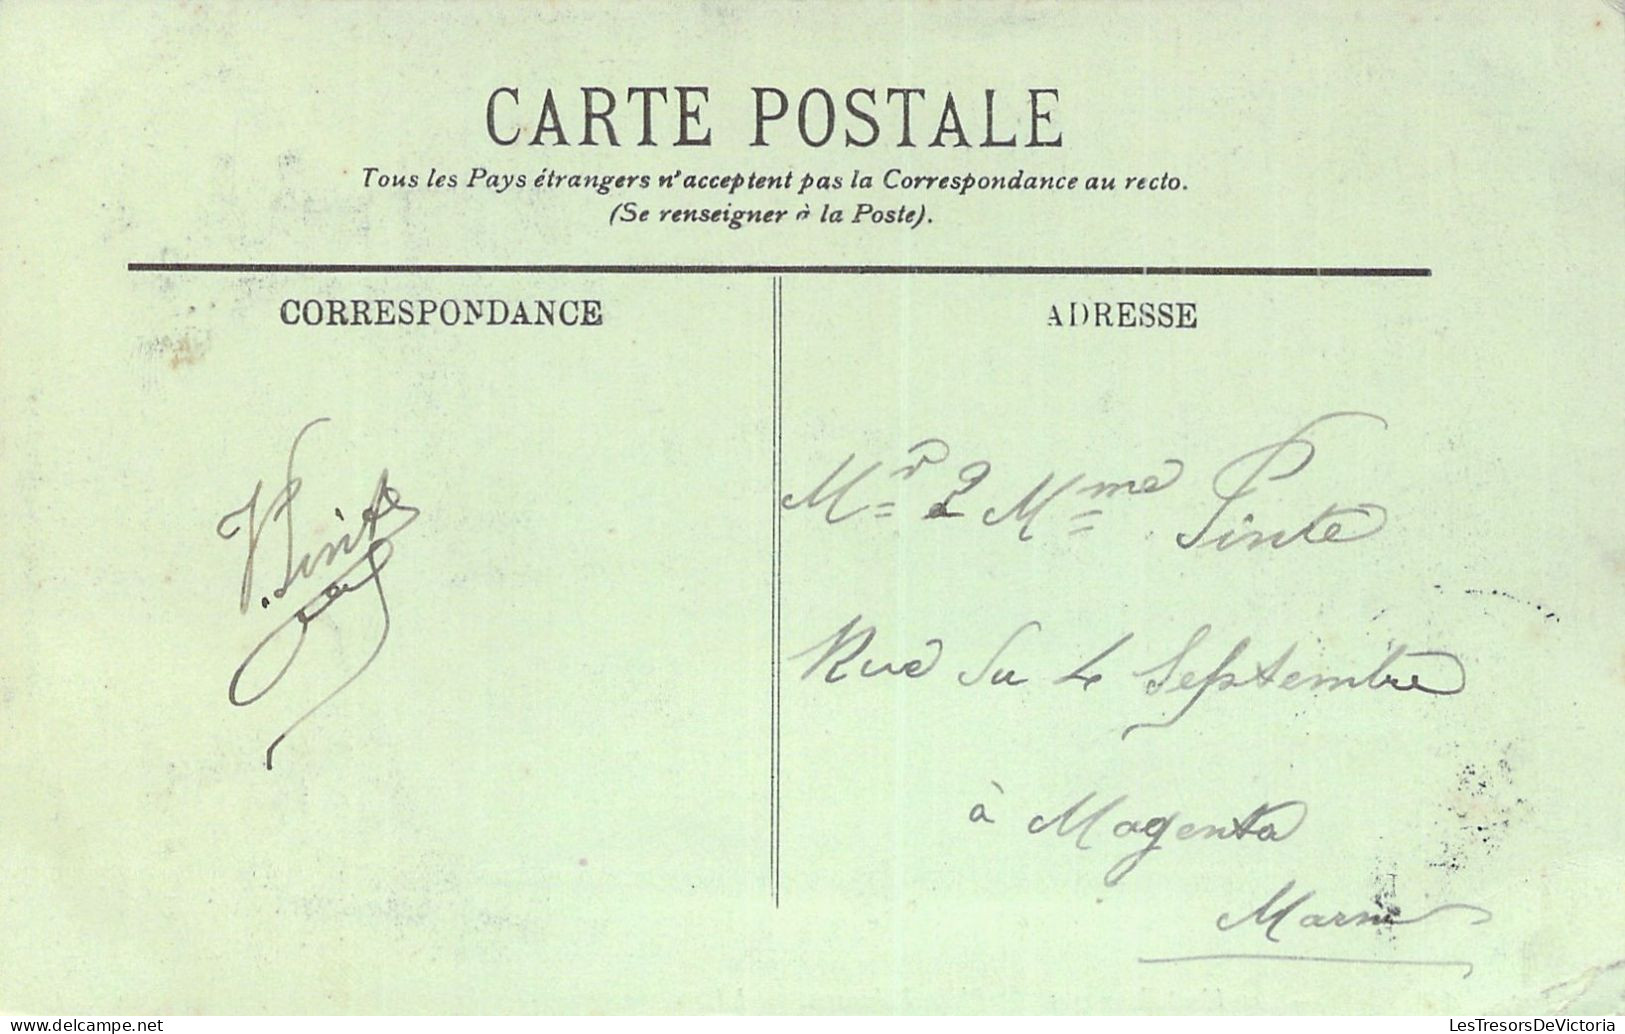 CARTE POSTALE
Tous les Pays étrangers n'acceptent pas la Correspondance au recto.
(Se renseigner à la Poste).
CORRESPONDANCE
ADRESSE
Mr & Mme Pinte
Rue du 4 Septembre
à Magenta
Marne
LesTresorsDeVictoria